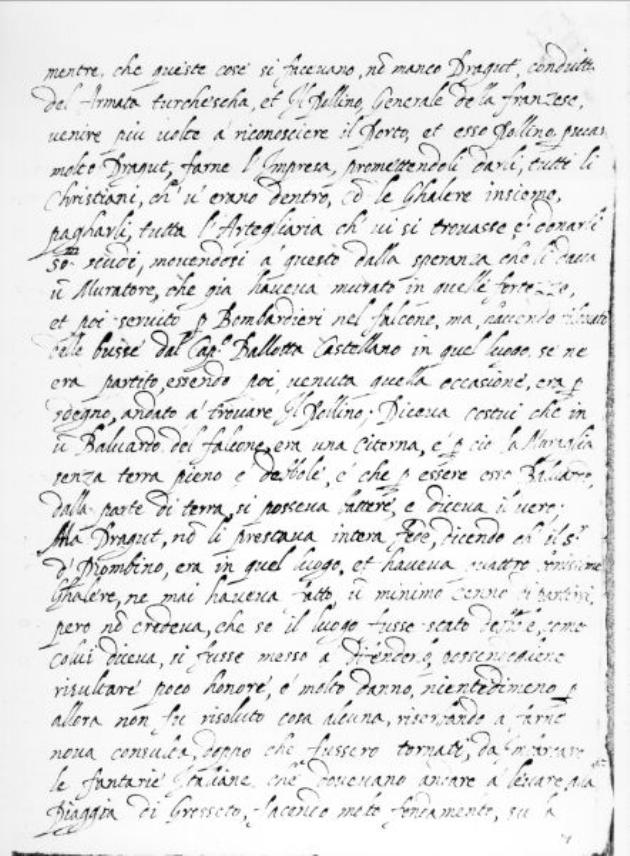 mentre, che queste cose si facevano, nō manco Dragut, condutt
del Armata turchescha, et Il Pollino, Generale della franzese,
venire piu volte a riconosciere il Porto, et esso Pollino,
molto Dragut, farne l'Impresa, promettendoli darli, tutti li
Christiani, ch' v' erano dentro, cō le Ghalere insieme,
pagharli, tutta l'Artegliaria ch' vi si trovasse e' donarli
50 scudi, movendosi a' questo dalla speranza che li dava
ū Muratore, che gia haveva murato in quelle fortezze,
et poi servito p Bombardieri nel falcone, ma, havendo
delle busse dal Cap.º Ballotta Castellano in quel luogo, se ne
era partito, essendo poi, venuta quella occasione, era p
sdegno, andato a' trovare Il Pollino; Diceva costui che in
ū Balvardo del falcone, era una citerna, e' p cio la Muraglia
senza terra pieno e debole, e' che p essere esso Balvardo,
dalla parte di terra, si posseva battere, e diceva il vero;
Ma Dragut, nō li prestava intera fede, dicendo ch' il S.r
d' Piombino, era in quel luogo, et haveva quattro
Ghalere, ne mai haveva fatto ū minimo cenno di partirsi,
pero nō credeva, che se il luogo fusse stato debole, come
colui diceva, si fusse messo a difenderlo,
risultare poco honore, e' molto danno, nientedimeno p
allora non fu risoluto cosa alcuna, riserbando a farne
nova consulta, doppo che fussero tornati, da Imbarcare
le fantarie Italiane che dovevano andare a' levare alla
Piaggia di Grosseto, facendo molto fondamento, su la